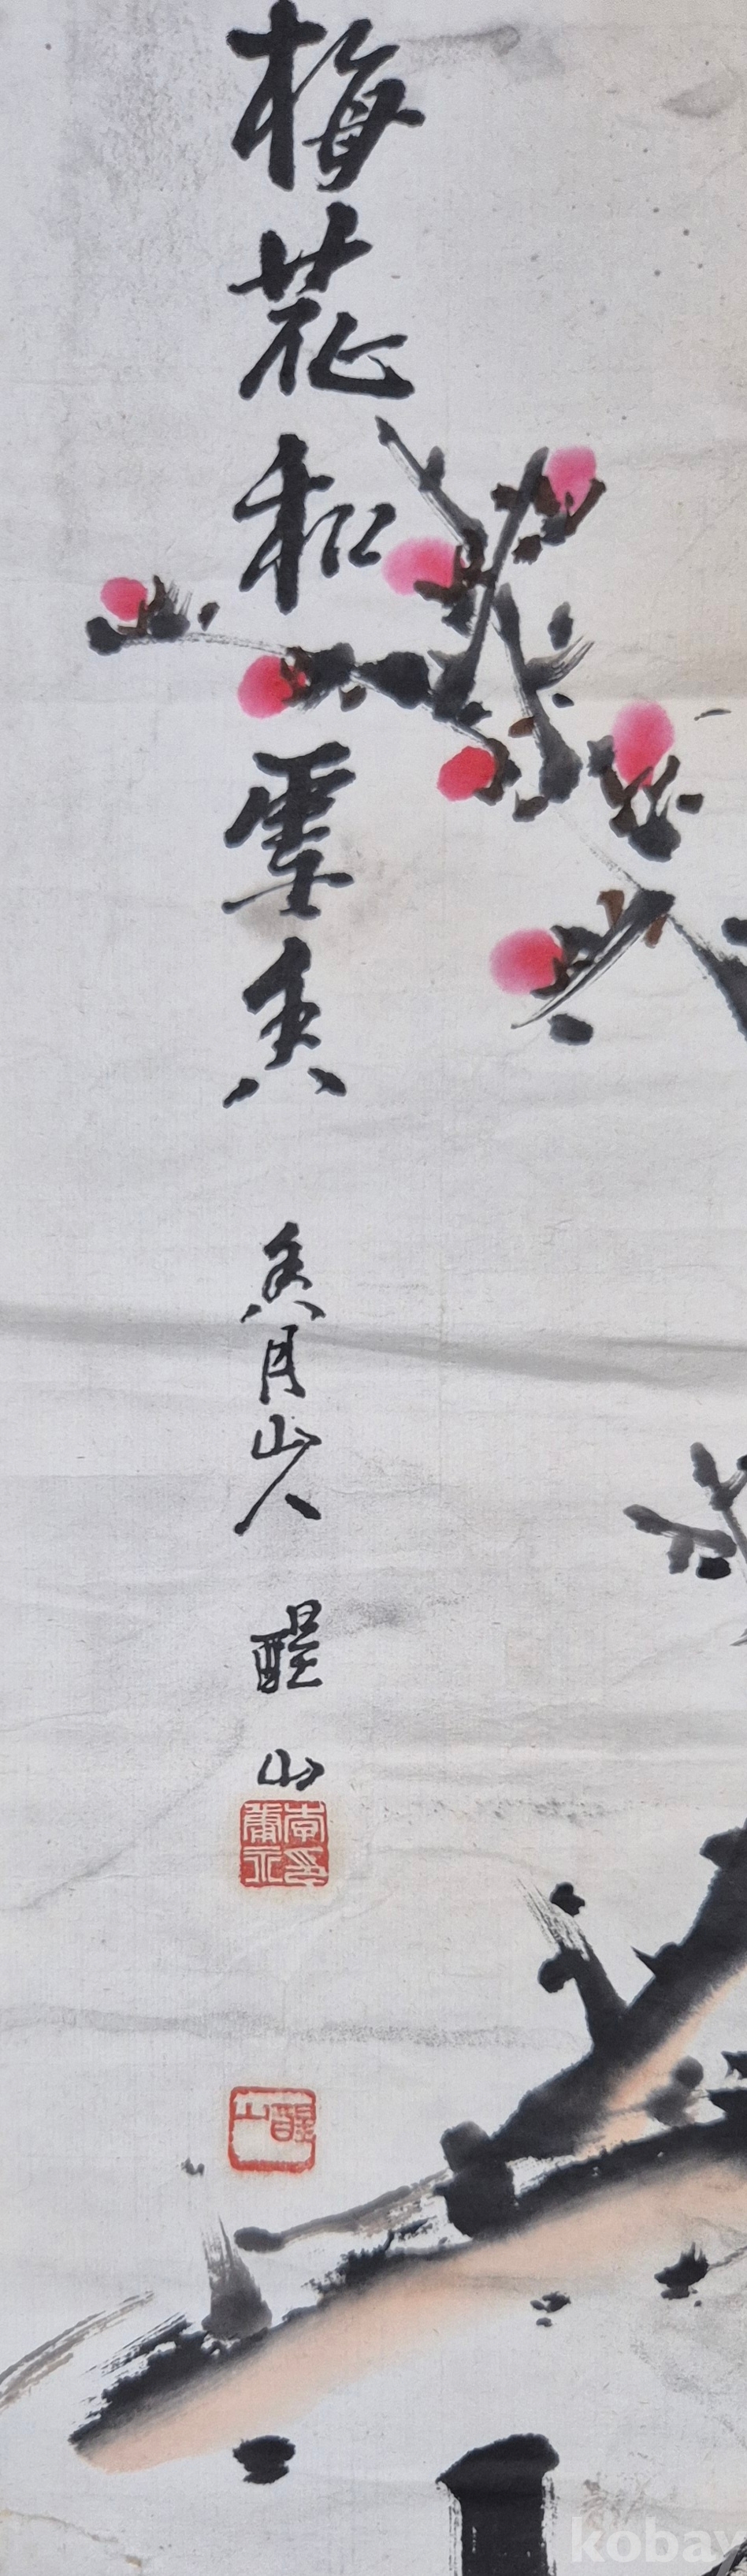 梅花和雪香
香月山人
醒山
醒山
kobay